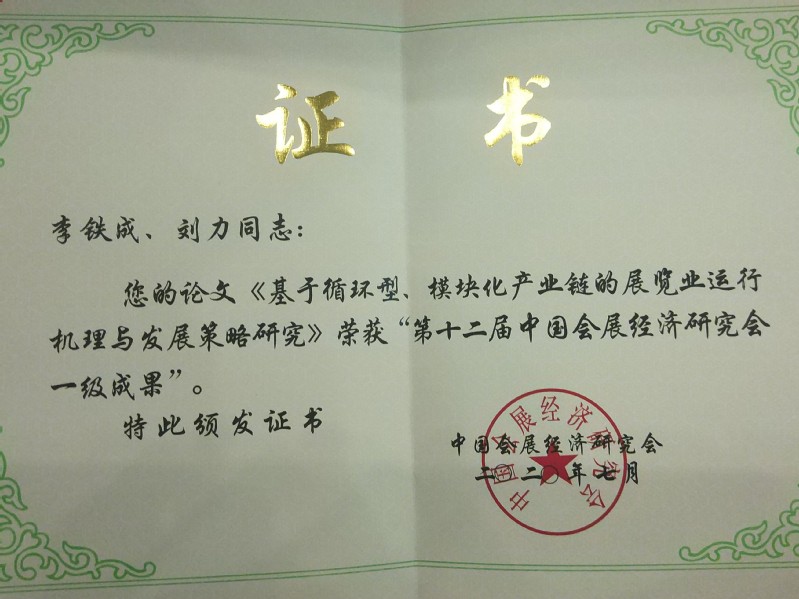 证书
李铁成、刘力同志：
您的论文《基于循环型、模块化产业链的展览业运行
机理与发展策略研究》荣获“第十二届中国会展经济研究会
一级成果”。
特此颁发证书
中国会展经济研究会
二〇二〇年七月
中国会展经济研究会